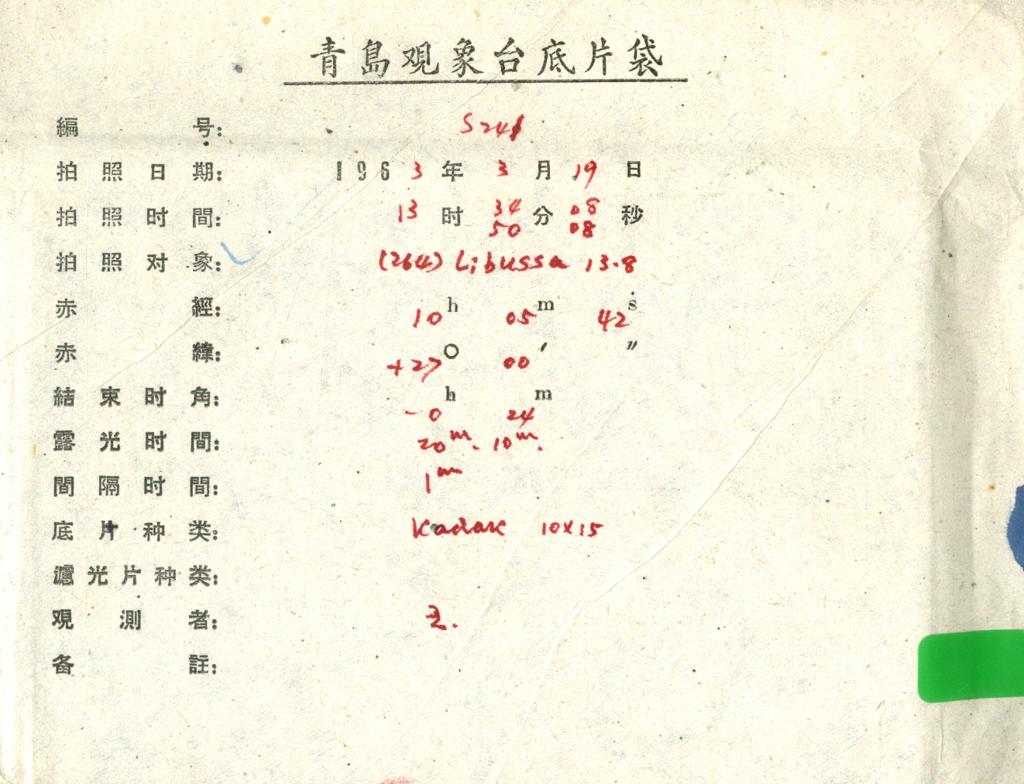 青島观象台底片袋
編号: S241
拍照日期: 1963年3月19日
拍照时間: 13时34分08秒
50 08
拍照对象: (264) Libussa 13.8
赤經: 10h 05m 42s
赤緯: +27° 00′ ″
結束时角: -0h 24m
露光时間: 20m. 10m.
間隔时間: 1m
底片种类: Kodak 10x15
濾光片种类:
观測者:
备註: